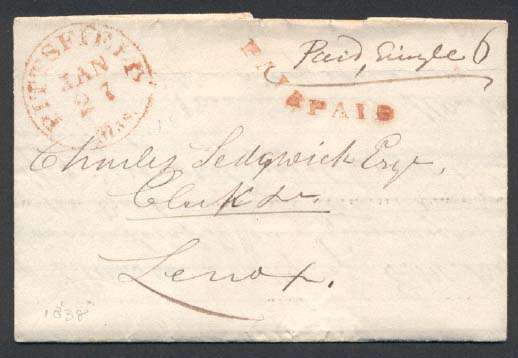 PITTSFIELD
JAN
27
Mass.
PAID
PAID
Paid, Single 6
Charles Sedgwick Esqr.
Clerk &c.
Lenox.
1838